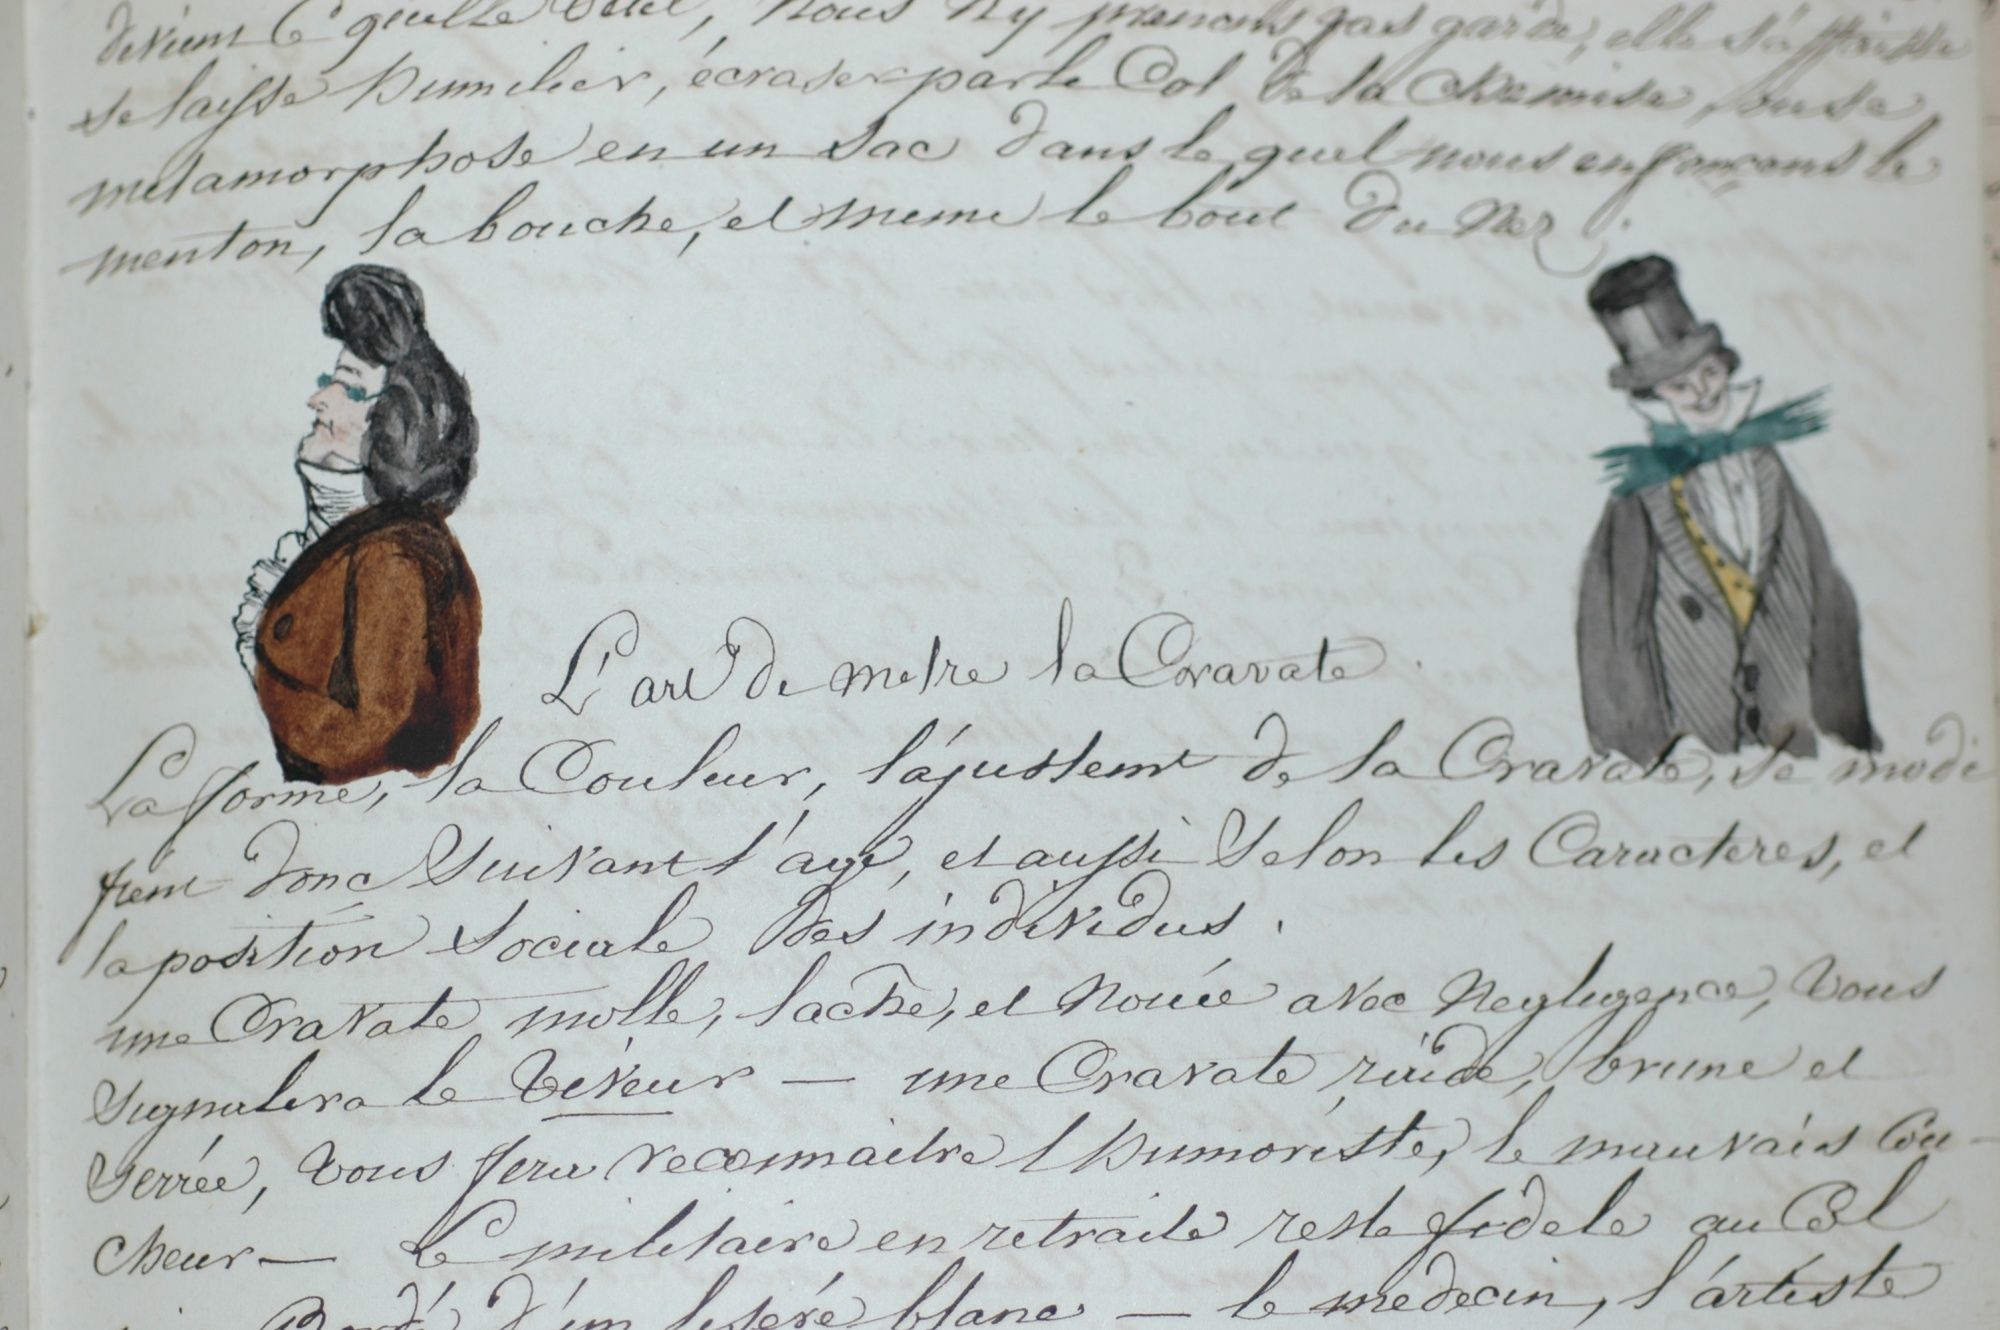 devient ce qu'elle veut, nous n'y prenons pas garde, elle s'affaisse
se laisse humilier, écraser par le Col de la Chemise, ou se
métamorphose en un sac dans le quel nous enfonçons le
menton, la bouche, et meme le bout du Nez.
L'art de metre la Cravate.
La forme, la Couleur, l'ajustemt de la Cravate, se modi
fient donc Suivant l'age, et aussi Selon les Caracteres, et
la position Sociale des individus.
une Cravate molle, lache, et Nouée avec Negligence, vous
Signalera le Viveur — une Cravate ruide, brune et
Serrée, vous fera reconnaitre l'humoriste, le mauvais Cou-
cheur — Le militaire en retraite reste fidele au Col
Bordé d'un liseré blanc — le medecin, l'artiste